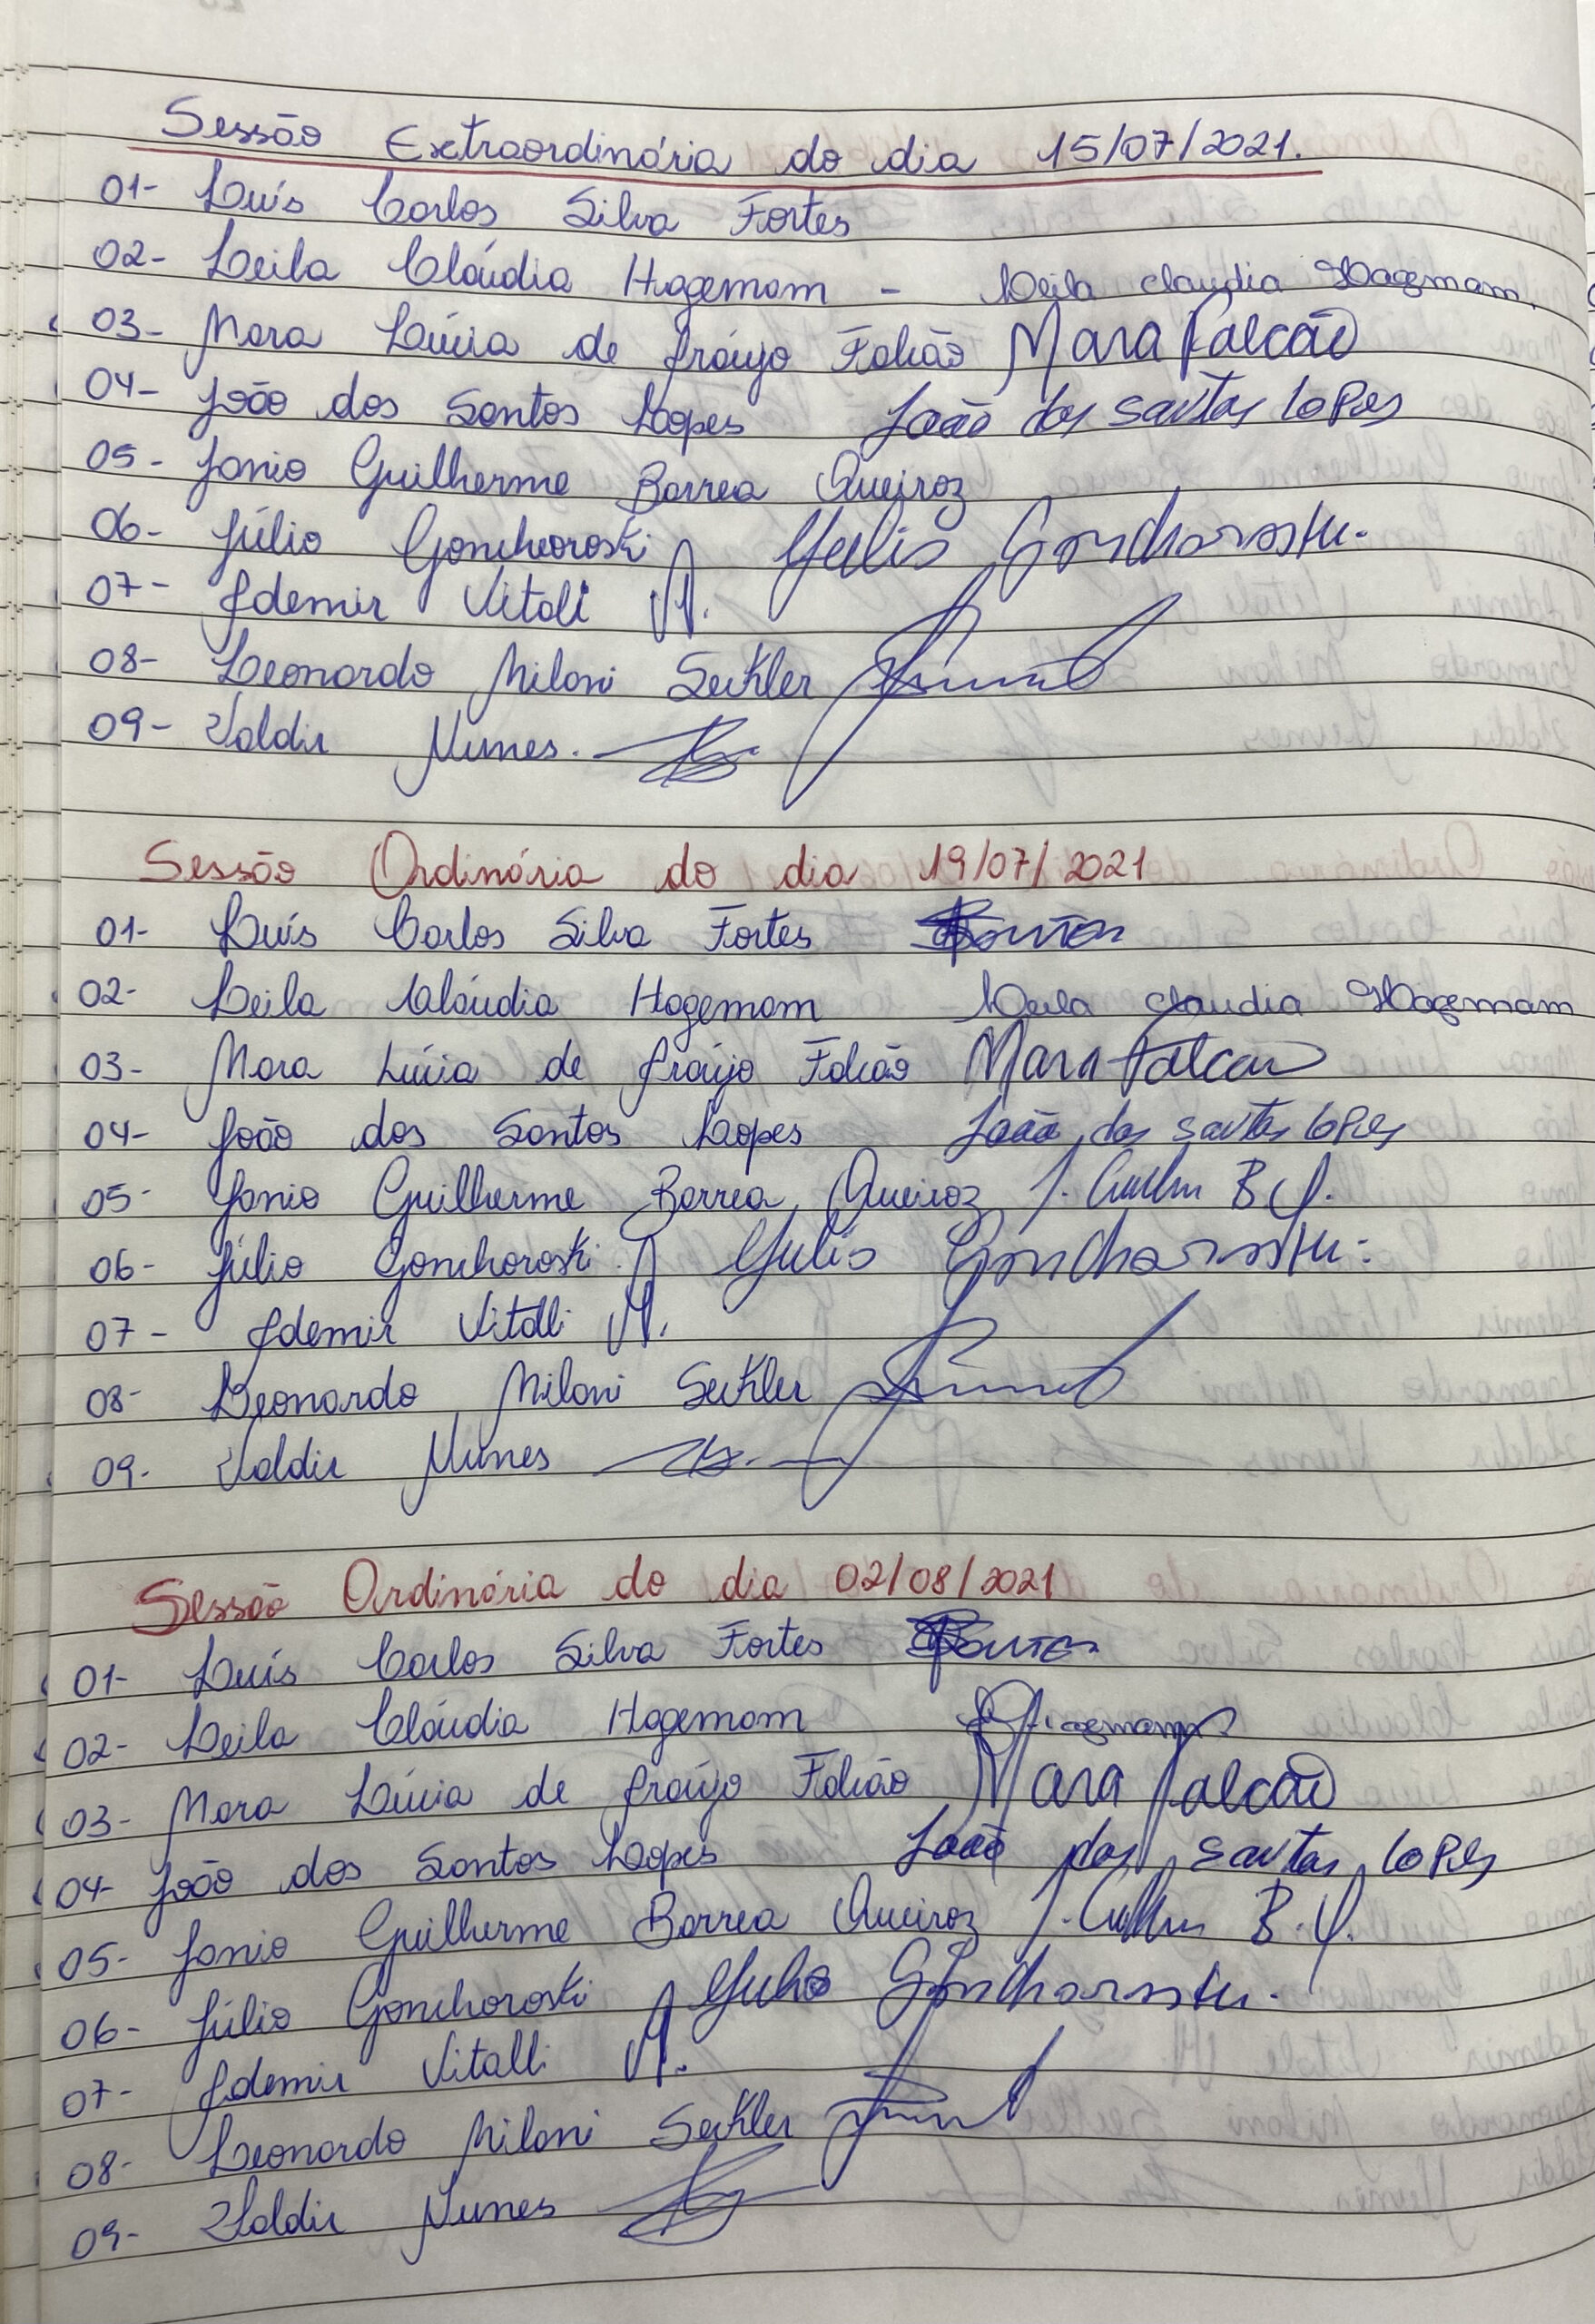 Sessão Extraordinária do dia 15/07/2021.
01- Luís Carlos Silva Fortes
02- Leila Cláudia Hagemam - Leila claudia Hagemam
03- Mara Lúcia de Araújo Falcão Mara Falcão
04- João dos Santos Lopes João dos santos lopes
05- Janio Guilherme Borrea Queiroz
06- Júlio Gonchoroski Julio Gonchoroski.
07- Ademir Vitali
08- Leonardo Miloni Seckler
09- Valdir Nunes.
Sessão Ordinária do dia 19/07/2021
01- Luís Carlos Silva Fortes Fortes
02- Leila Cláudia Hagemam Leila claudia Hagemam
03- Mara Lúcia de Araújo Falcão Mara Falcão
04- João dos Santos Lopes João dos santos lopes
05- Janio Guilherme Borrea Queiroz J. B Q.
06- Júlio Gonchoroski Julio Gonchoroski.
07- Ademir Vitalli
08- Leonardo Miloni Seckler
09- Valdir Nunes
Sessão Ordinária do dia 02/08/2021
01- Luís Carlos Silva Fortes Fortes
02- Leila Cláudia Hagemam Hagemam
03- Mara Lúcia de Araújo Falcão Mara Falcão
04- João dos Santos Lopes João dos santos lopes
05- Janio Guilherme Borrea Queiroz J. B. Q.
06- Júlio Gonchoroski Julio Gonchoroski.
07- Ademir Vitalli
08- Leonardo Miloni Seckler
09- Valdir Nunes